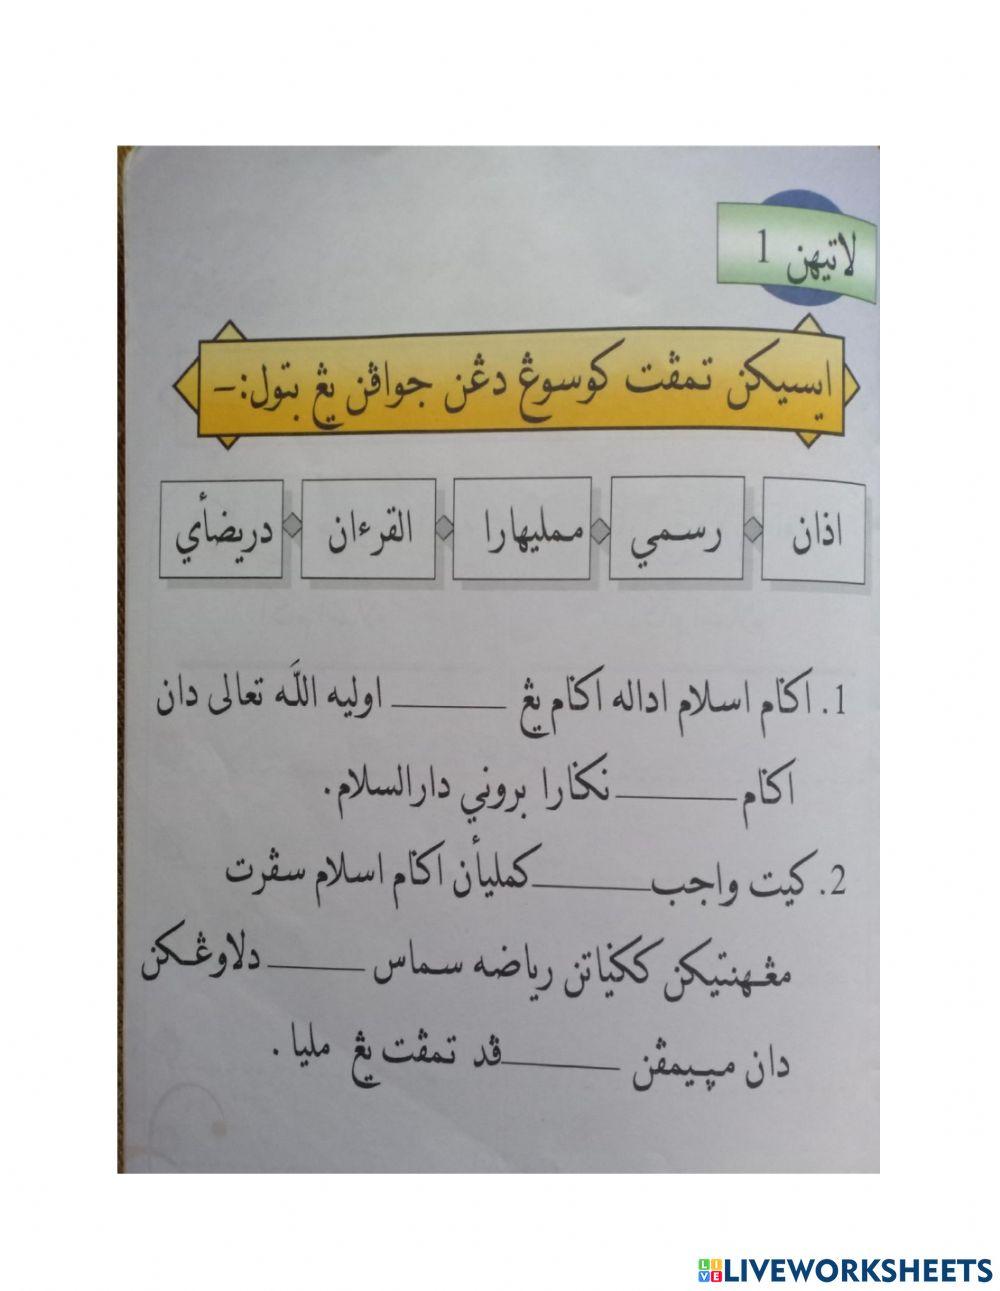 لاتيهن 1
ايسيكن تمڤت كوسوڠ دڠن جواڤن يڠ بتول:-
اذان رسمي ممليهارا القرءان دريضأي
1. اݢام اسلام اداله اݢام يڠ ______ اوليه الله تعالى دان
اݢام ______ نݢارا بروني دارالسلام.
2. كيت واجب ______ كمليأن اݢام اسلام سڤرت
مڠهنتيكن كݢياتن رياضه سماس ______ دلاوڠكن
دان مڽيمڤن ______ ڤد تمڤت يڠ مليا .
LIVEWORKSHEETS